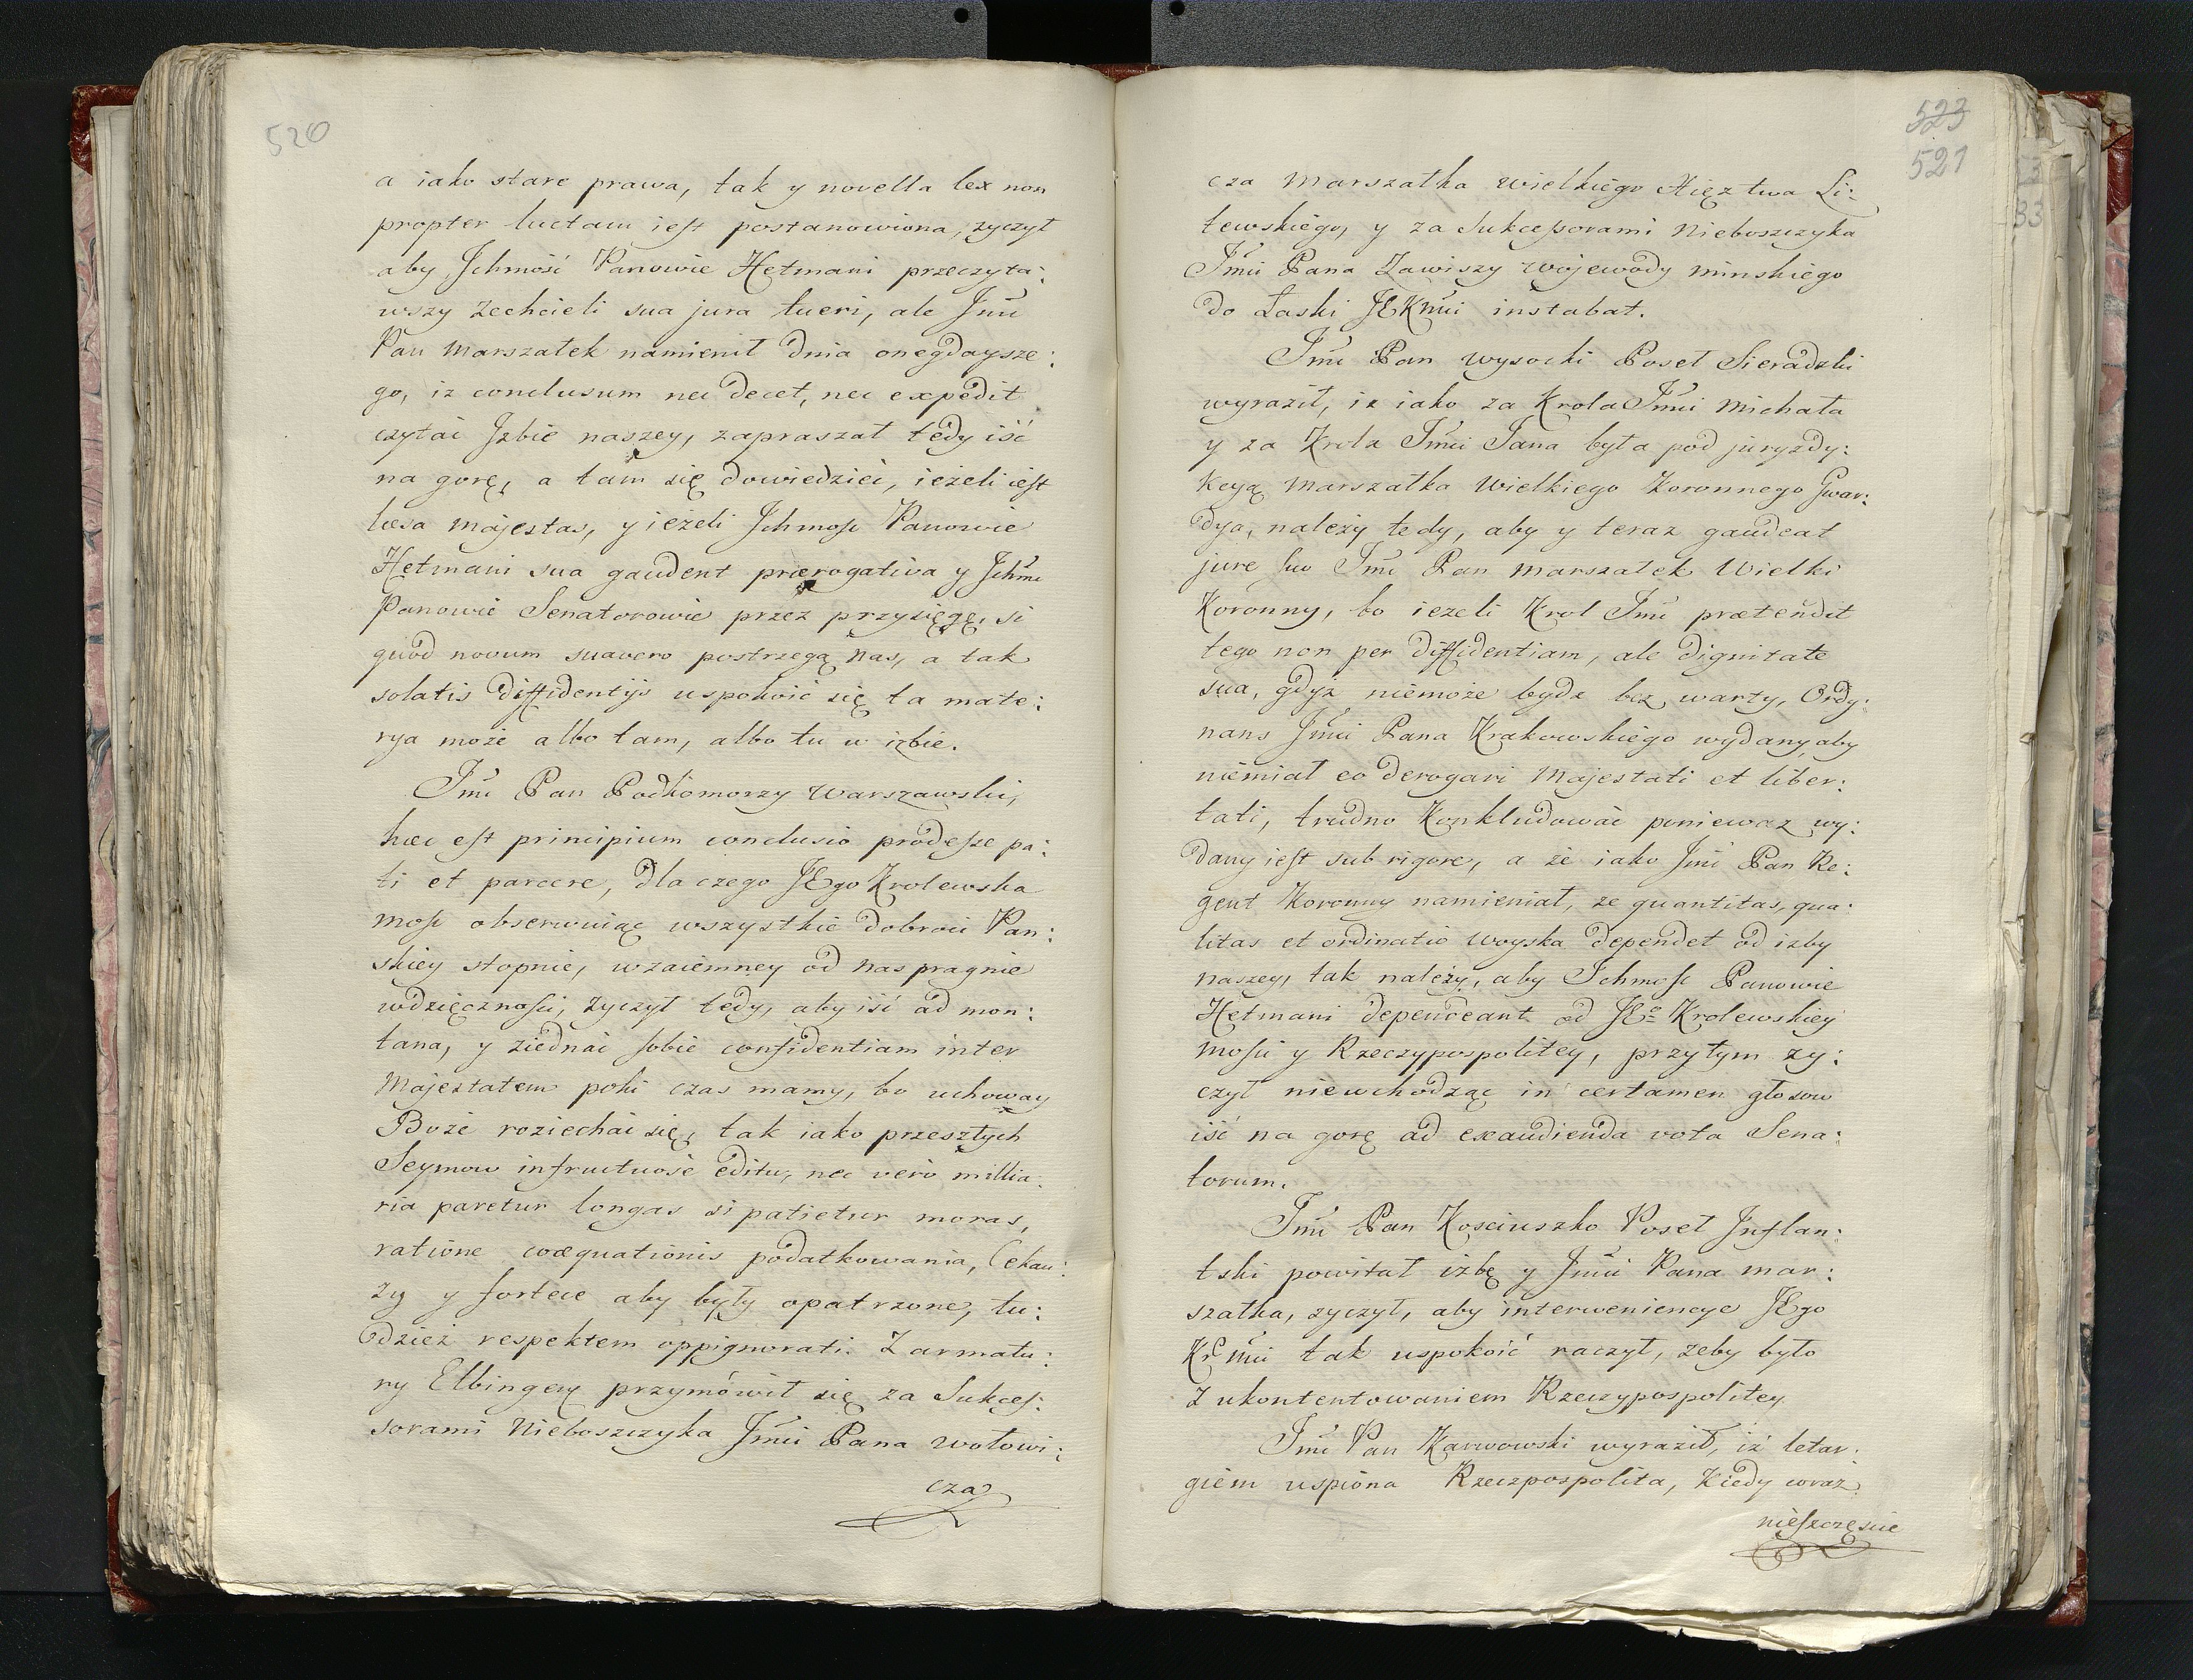 520
a iako stare prawa, tak y novella lex non
propter luctam iest postanowiona, zyczył
aby Jchmość Panowie Hetmani przeczyta:
wszy zechcieli sua jura tueri, ale Jmć
Pan Marszałek namienił dnia onegdaysze:
go, iz conclusum nec decet, nec expedit
czytać Jzbie naszey, zapraszał tedy iść
na gorę, a tam się dowiedzieć, ieżeli iest
læsa majestas, y ieżeli Jchmość Panowie
Hetmani sua gaudent prærogativa y Jchmć
Panowie Senatorowie przez przysięgę, si
quod novum suavero postrzegą nas, a tak
solatis diffidentijs uspokoić się ta mate:
rya może albo tam, albo tu w izbie.
Jmć Pan Podkomorzy Warszawski,
hæc est principium conclusio prodesse pa:
ti et parcere, dla czego JEgo Krolewska
mość obserwuiąc wszystkie dobroci Pan:
skiey stopnie, wzaiemney od nas pragnie
wdzięczności, zyczył tedy, aby iść ad mon:
tana, y ziednać sobie confidentiam inter
Majestatem poki czas mamy, bo uchoway
Boże roziechać się, tak iako przeszłych
Seymow infructuose editu, nec vero millia:
ria paretur longas si patietur moras,
ratione coæquationis podatkowania, Cekau:
zy y fortece aby były opatrzone, tu:
dzież respektem oppignorati. Z armatu:
ry Elbingen przymówił się za Sukces:
sorami Nieboszczyka Jmći Pana Wołowi:
cza
523
521
cza Marszałka Wielkiego Xięztwa Li:
tewskiego, y za Sukcessorami Nieboszczyka
Jmći Pana Zawiszy Wojewody Minskiego
do Łaski JEKMći instabat.
Jmć Pan Wysocki Poseł Sieradzki
wyraził, iz iako za Krola Jmći Michała
y za Krola Jmći Jana była pod juryzdy:
kcyą Marszałka Wielkiego Koronnego Gwar:
dya, należy tedy, aby y teraz gaudeat
jure suo Jmć Pan Marszałek Wielki
Koronny, bo ieżeli Krol Jmć prætendit
tego non per diffidentiam, ale dignitate
sua, gdyż niemoże bydz bez warty, Ordy:
nans Jmći Pana Krakowskiego wydany, aby
niemiał eo derogari Majestati et liber:
tati, trudno konkludować poniewaz wy:
dany iest sub rigore, a że iako Jmć Pan Re:
gent Koronny namieniał, ze quantitas, qua:
litas et ordinatio woyska dependet od izby
naszey, tak należy, aby Jchmość Panowie
Hetmani dependeant od JEo Krolewskiey
mości y Rzeczypospolitey, przytym zy:
czył niewchodząc in certamen głosow
iść na gorę ad exaudienda vota Sena:
torum.
Jmć Pan Kosciuszko Poseł Jnflan:
tski powitał izbę y Jmći Pana Mar:
szałka, zyczył, aby interweniencye JEgo
Kr Mći tak uspokoić raczył, zeby było
z ukontentowaniem Rzeczypospolitey
Jmć Pan Karwowski wyraził, iż letar:
giem uspiona Rzeczpospolita, kiedy coraz
nieszczęscie